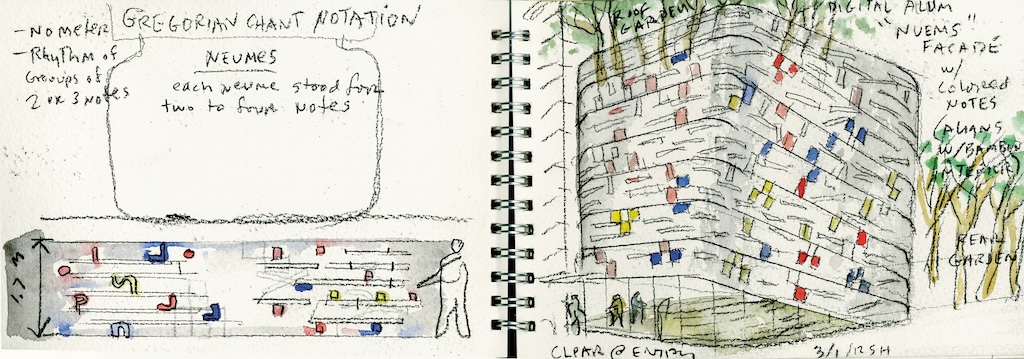 GREGORIAN CHANT NOTATION
- NO METER
- Rhythm of
Groups of
2 or 3 notes
NEUMES
each neume stood for
two to four notes
1.7 M
ROOF
GARDEN
DIGITAL ALUM
"NUEMS"
FACADE
W/
COLORED
NOTES
W/BAMBOO
INTERIOR
REAR
GARDEN
CLEAR @ ENTRY
3/1/12 SH